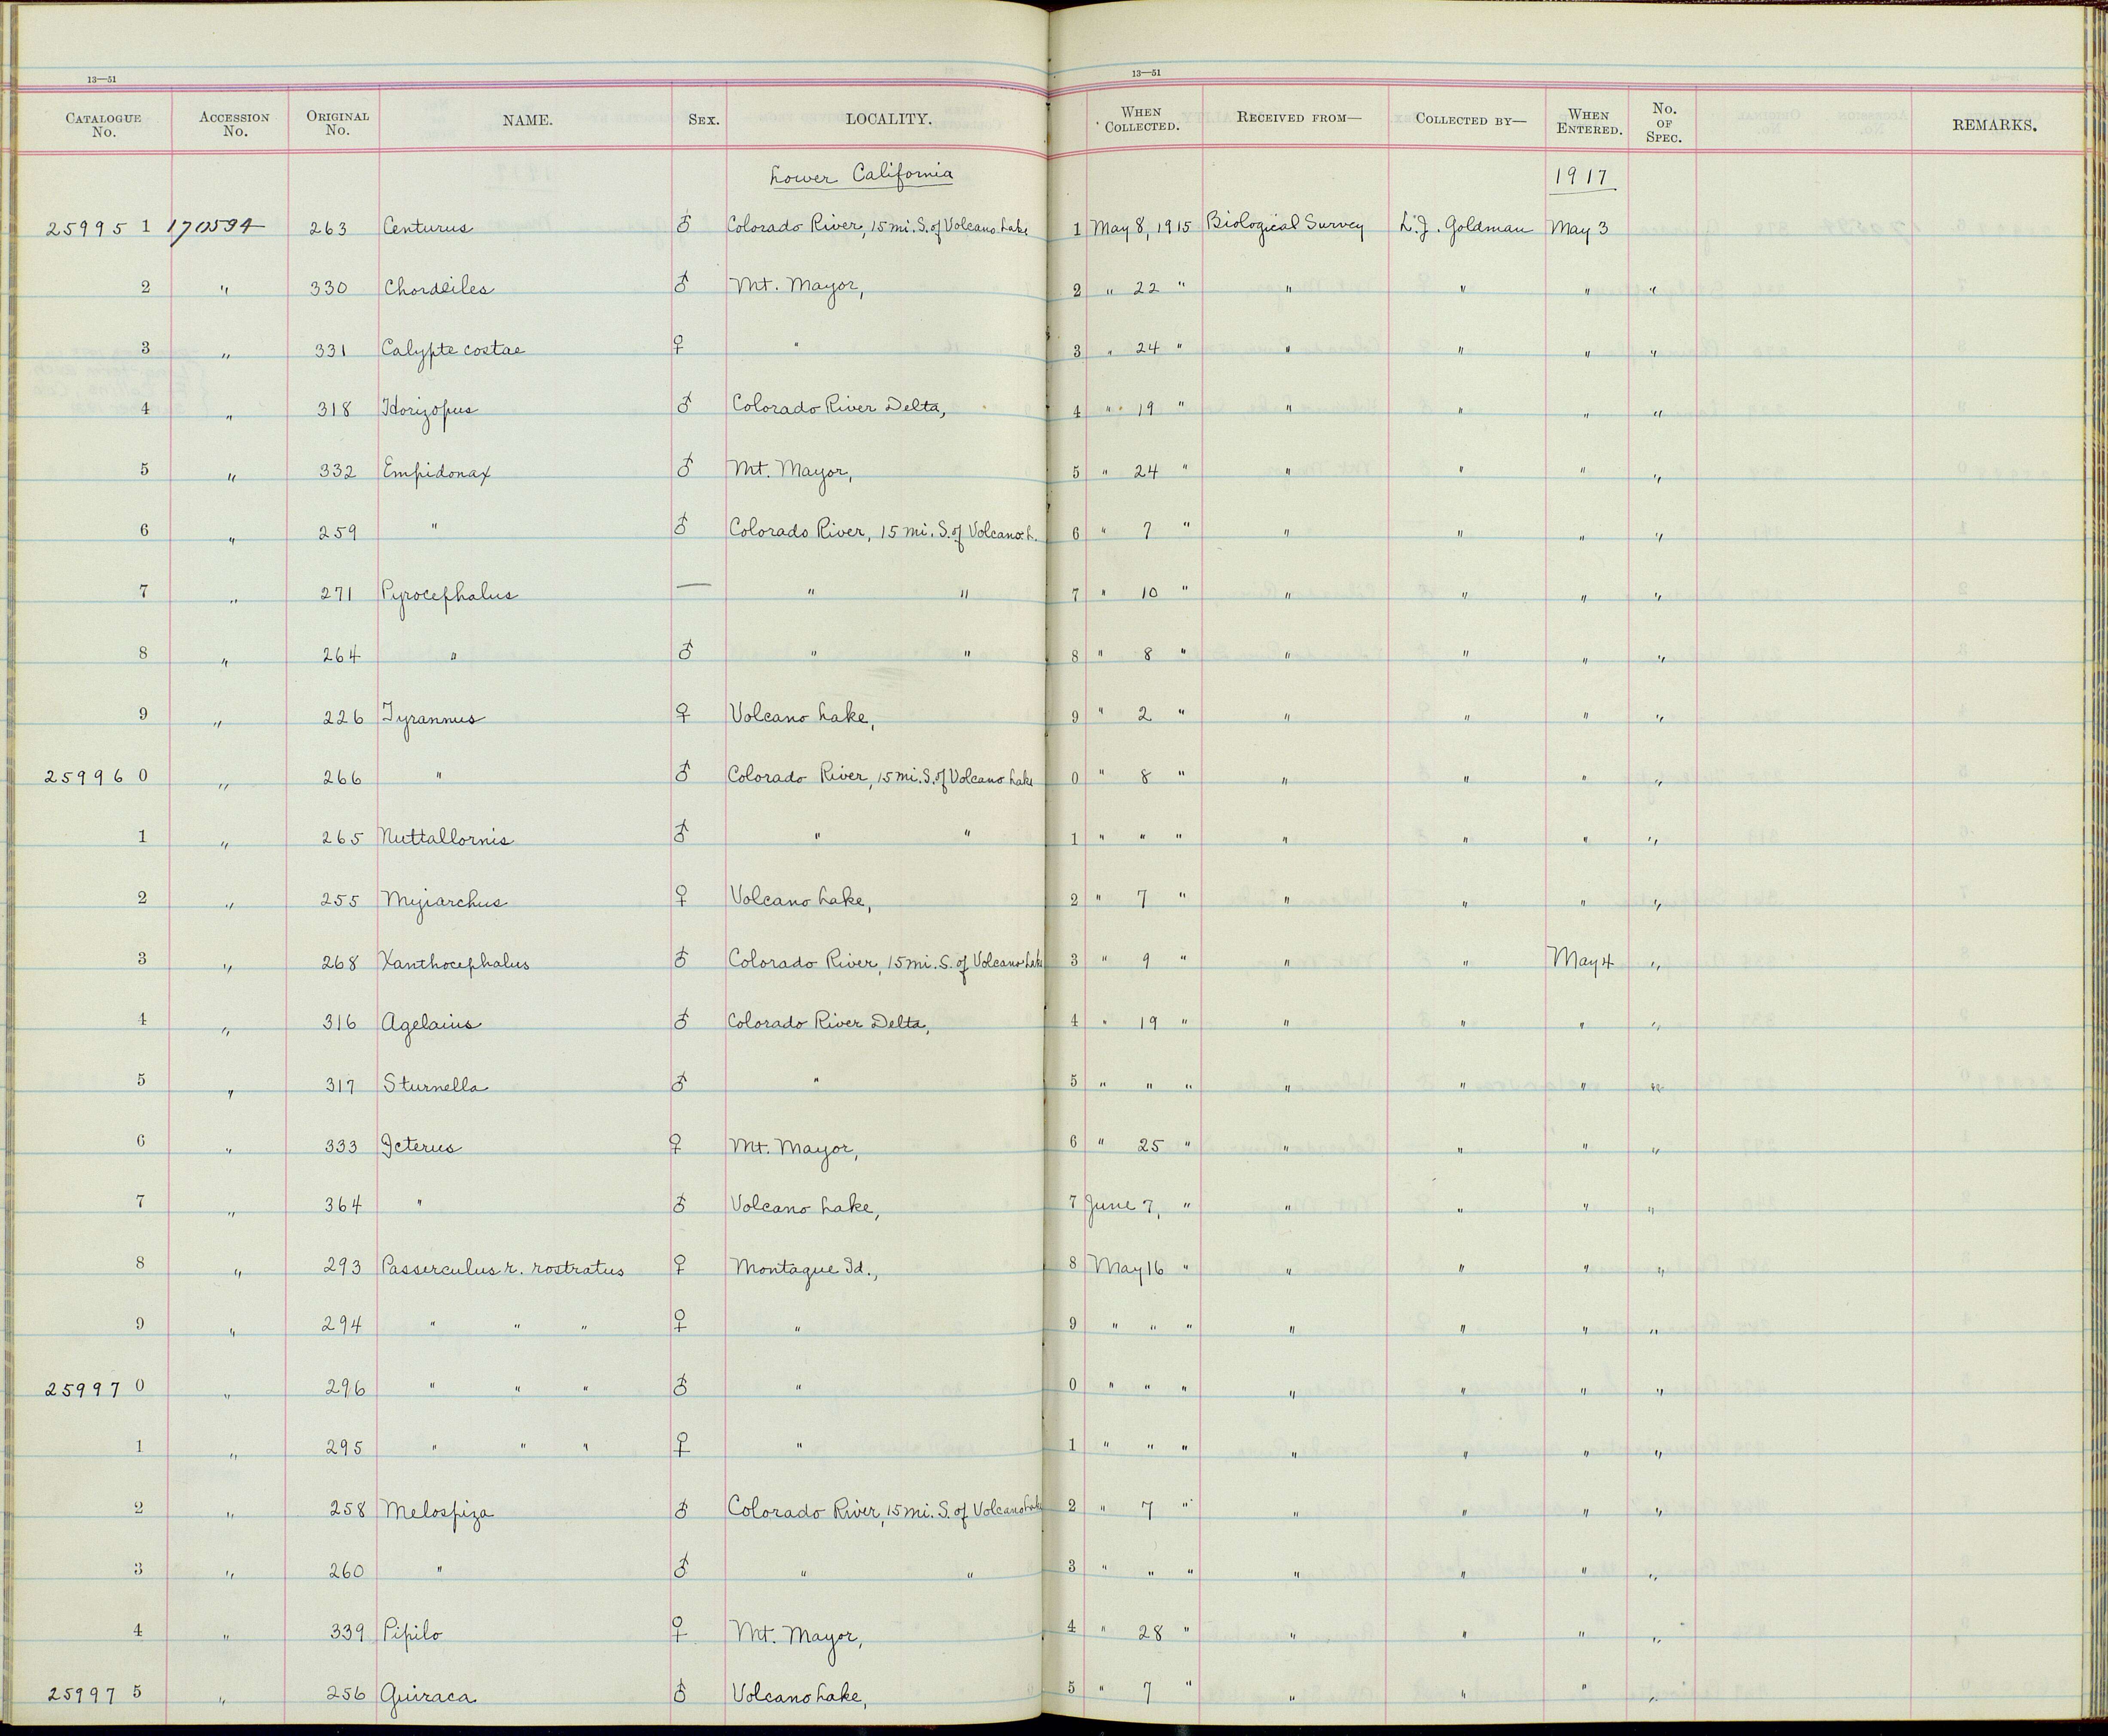 13—51 13—51
CATALOGUE No. ACCESSION No. ORIGINAL No. NAME. SEX. LOCALITY. WHEN COLLECTED. RECEIVED FROM— COLLECTED BY— WHEN ENTERED. No. OF SPEC. REMARKS.
Lower California 1917
259951 170594 263 Centurus ♂ Colorado River, 15 mi. S. of Volcano Lake 1 May 8, 1915 Biological Survey L. J. Goldman May 3
2 " 330 Chordeiles ♂ Mt. Mayor, 2 " 22 " " " " "
3 " 331 Calypte costae ♀ " 3 " 24 " " " " "
4 " 318 Horizopus ♂ Colorado River Delta, 4 " 19 " " " " "
5 " 332 Empidonax ♂ Mt. Mayor, 5 " 24 " " " " "
6 " 259 " ♂ Colorado River, 15 mi. S. of Volcano L. 6 " 7 " " " " "
7 " 271 Pyrocephalus — " " 7 " 10 " " " " "
8 " 264 " ♂ " " 8 " 8 " " " " "
9 " 226 Tyrannus ♀ Volcano Lake, 9 " 2 " " " " "
259960 " 266 " ♂ Colorado River, 15 mi. S. of Volcano Lake 0 " 8 " " " " "
1 " 265 Nuttallornis ♂ " " 1 " " " " " " "
2 " 255 Myiarchus ♀ Volcano Lake, 2 " 7 " " " " "
3 " 268 Xanthocephalus ♂ Colorado River, 15 mi. S. of Volcano Lake 3 " 9 " " " May 4 "
4 " 316 Agelaius ♂ Colorado River Delta, 4 " 19 " " " " "
5 " 317 Sturnella ♂ " 5 " " " " " " "
6 " 333 Icterus ♀ Mt. Mayor, 6 " 25 " " " " "
7 " 364 " ♂ Volcano Lake, 7 June 7, " " " " "
8 " 293 Passerculus r. rostratus ♀ Montague Id., 8 May 16 " " " " "
9 " 294 " " " ♀ " 9 " " " " " " "
259970 " 296 " " " ♂ " 0 " " " " " " "
1 " 295 " " " ♀ " 1 " " " " " " "
2 " 258 Melospiza ♂ Colorado River, 15 mi. S. of Volcano Lake 2 " 7 " " " " "
3 " 260 " ♂ " " 3 " " " " " " "
4 " 339 Pipilo ♀ Mt. Mayor, 4 " 28 " " " " "
259975 " 256 Guiraca ♂ Volcano Lake, 5 " 7 " " " " "